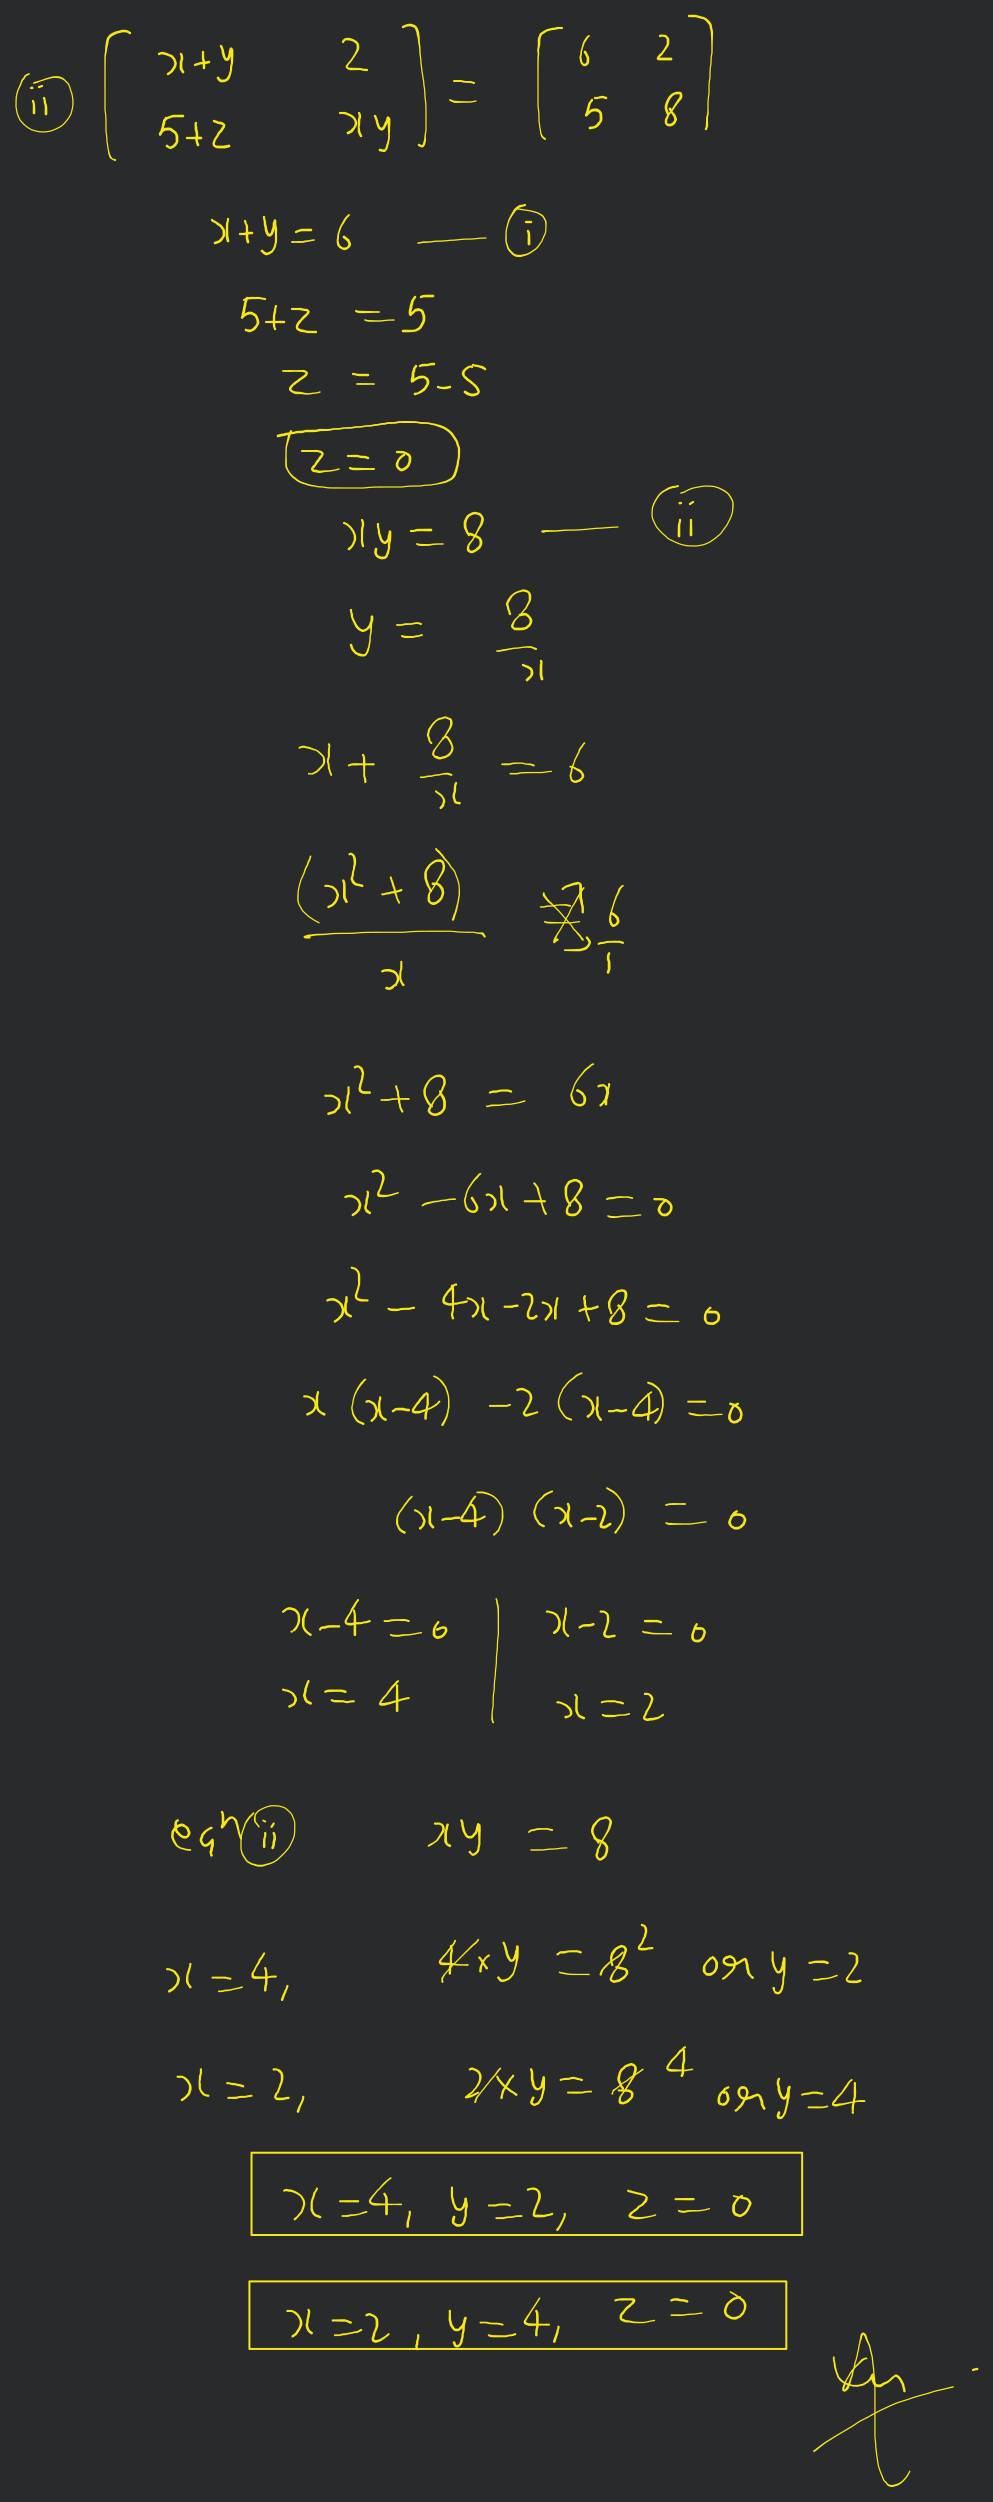 (ii) [ x+y 2 ] = [ 6 2 ]
[ 5+z xy ] [ 5 8 ]
x+y = 6 — (i)
5+z = 5
z = 5-5
z = 0
xy = 8 — (ii)
y = 8/x
x + 8/x = 6
(x²+8)/x 6/1
x²+8 = 6x
x² - 6x + 8 = 0
x² - 4x - 2x + 8 = 0
x (x-4) -2 (x-4) = 0
(x-4) (x-2) = 0
x-4 = 0 | x-2 = 0
x = 4 | x = 2
eqn (ii) xy = 8
x = 4, 4×y = 8 2 or y = 2
x = 2, 2×y = 8 4 or y = 4
x = 4, y = 2, z = 0
x = 2, y = 4, z = 0